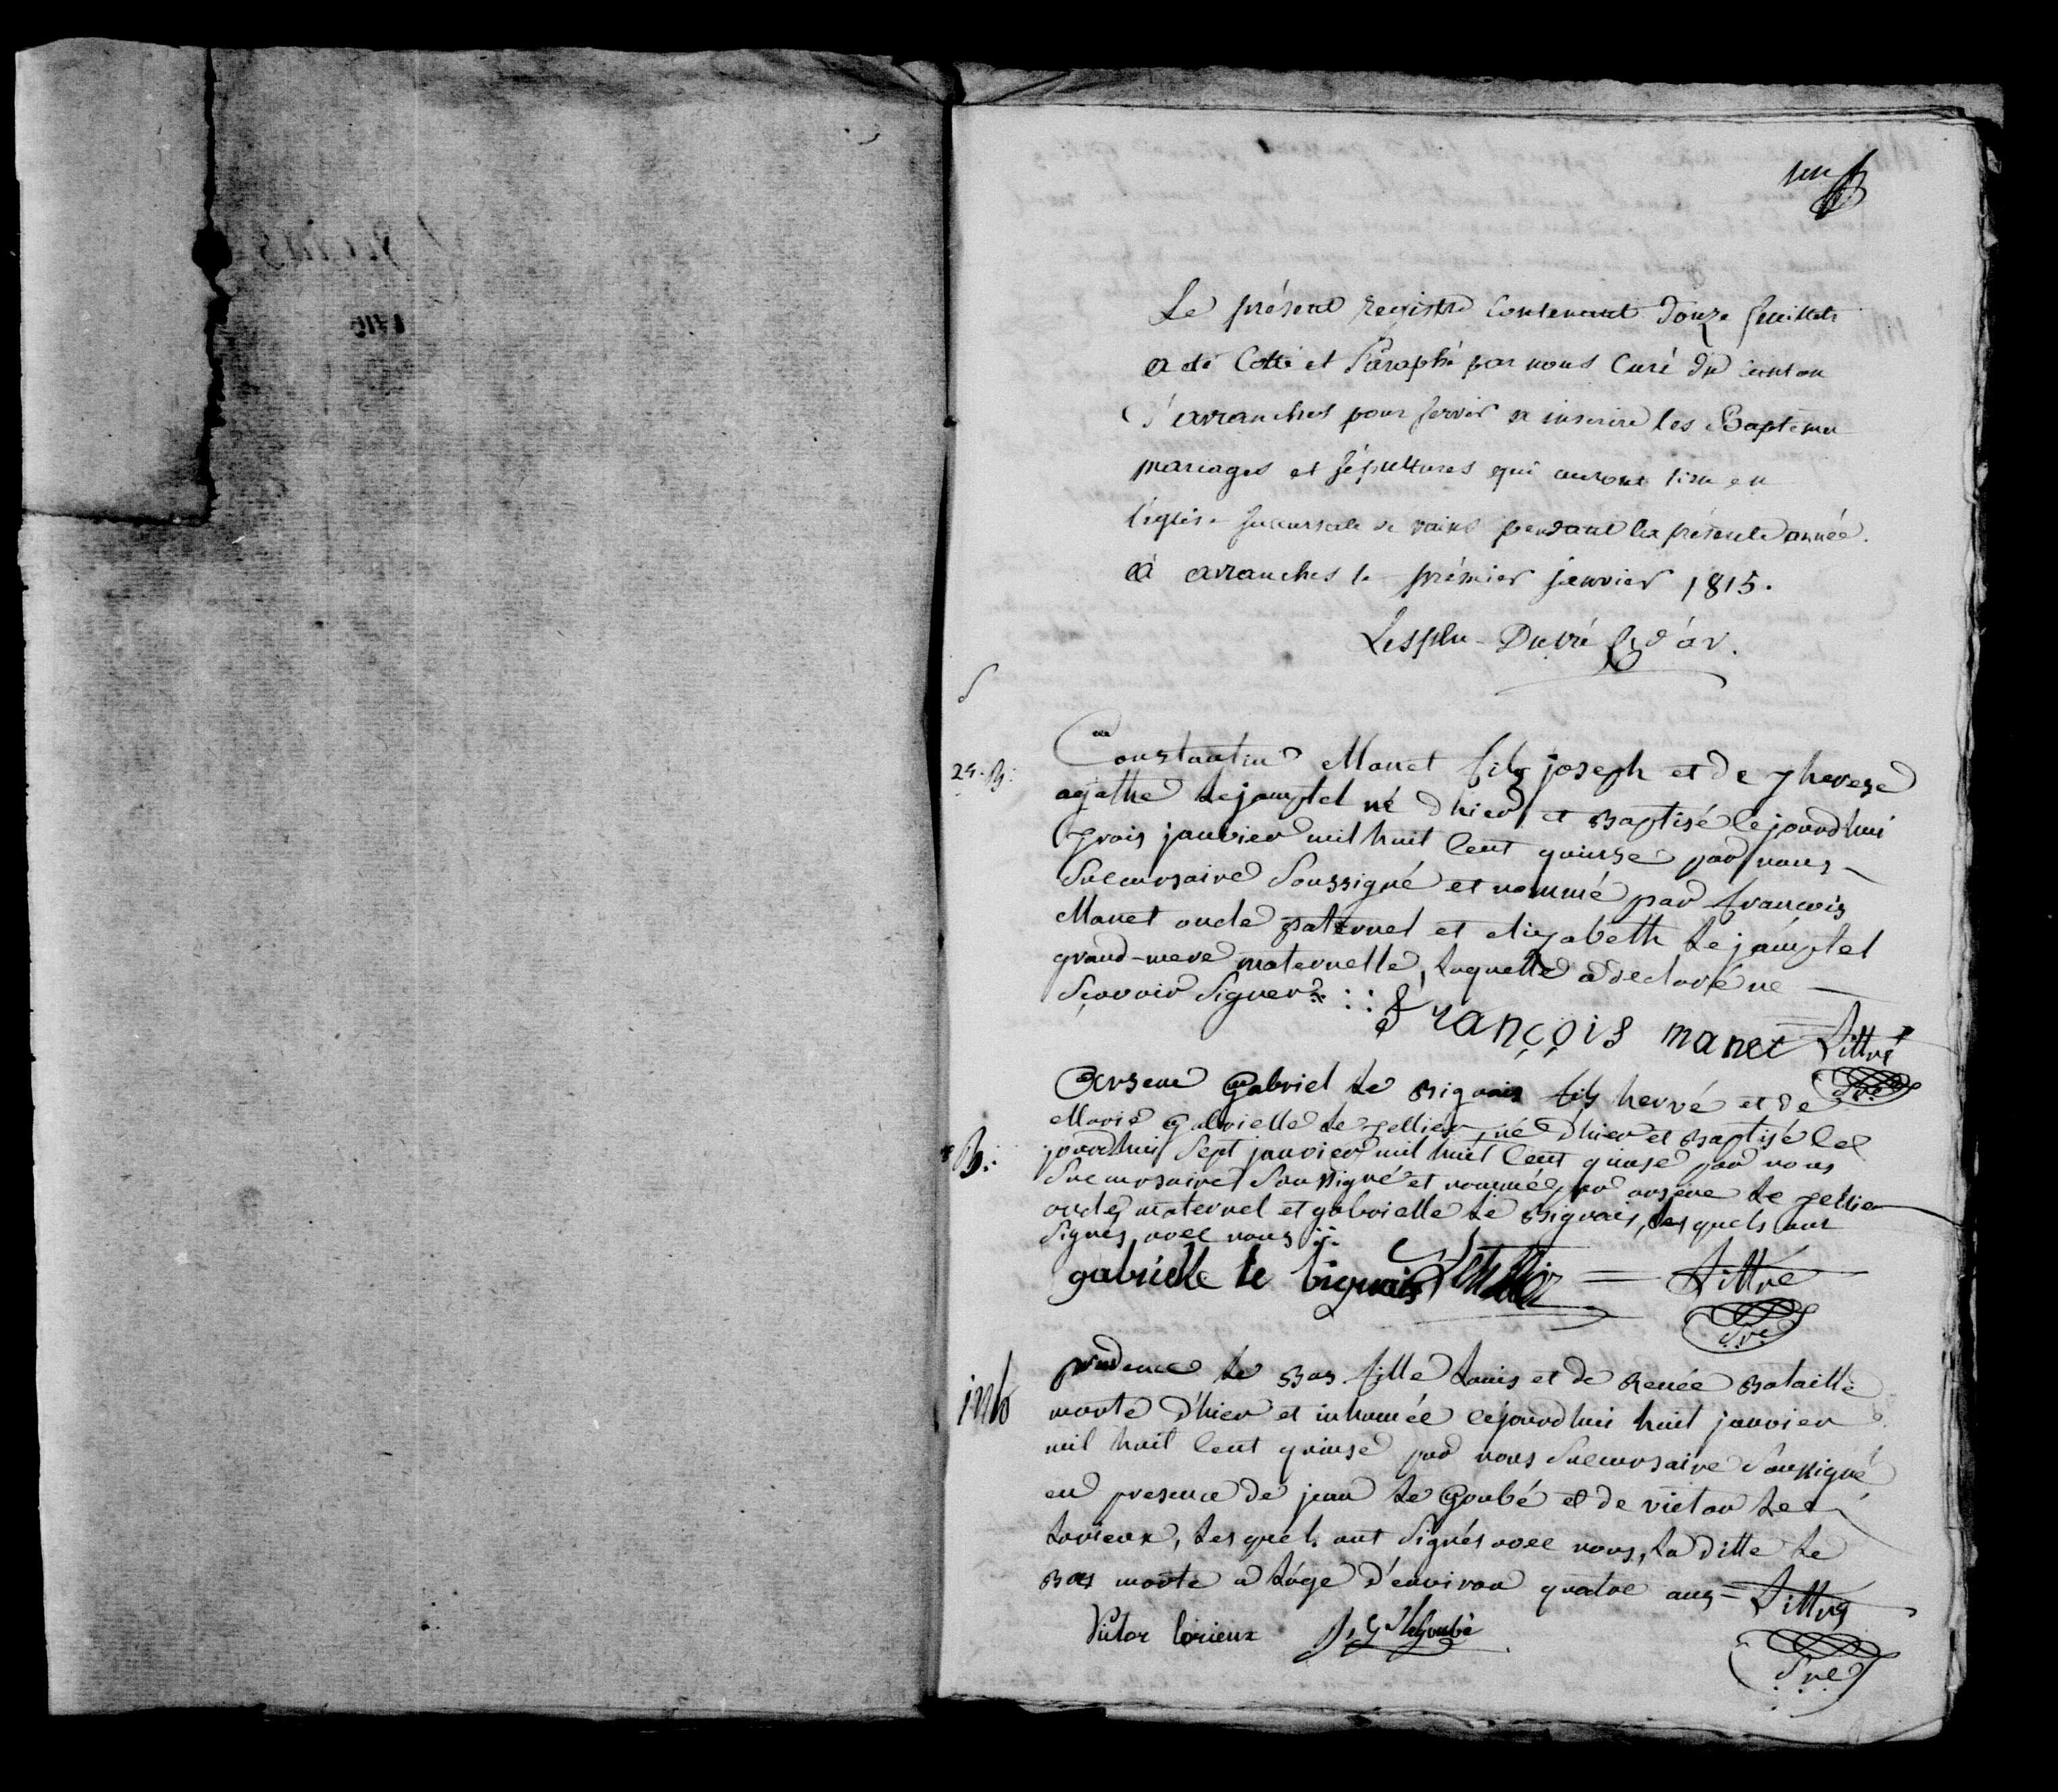 un
Le présent registre contenant douze feuillets
a été Cotté et Paraphé par nous Curé du canton
d'avranches pour servir a inscrire les Baptemes
mariages et sépultures qui auront lieu en
l'église succursale de vains pendant la présente année.
à avranches le prémier janvier 1815.
d'av.
B.
Constantin Manet fils joseph et de therese
agathe Le jamptel né d'hier et Baptisé cejourdhui
trois janvier mil huit cent quinze par nous
Succursaire Soussigné et nommé par françois
Manet oncle paternel et elizabeth Le jamptel
grand-mere maternelle, laquelle a declaré ne
Sçavoir Signer
François manet Littré
Sre
Arsene gabriel Le Bignais fils hervé et de
Marie gabrielle Le tellier, né d'hier et Baptisé ce
B.
jourdhui Sept janvier mil huit cent quinse par nous
Succursaire Soussigné et nommé par arsene Le tellier
oncle maternel et gabrielle Le Bignais, lesquels ont
Signés avec nous
gabrielle le bignais Letellier Littré
Sre
prudence Le Bas fille Louis et de Renée Bataille
inh
morte d'hier et inhumée cejourdhui huit janvier
mil huit cent quinse par nous Succursaire Soussigné
en presence de jean Le Goubé et de victor Le
Lorieux, lesquels ont Signés avec nous, La ditte Le
Bas morte a Lage d'environ quatre ans = Littré
Victor lorieux Legoubé
Sre